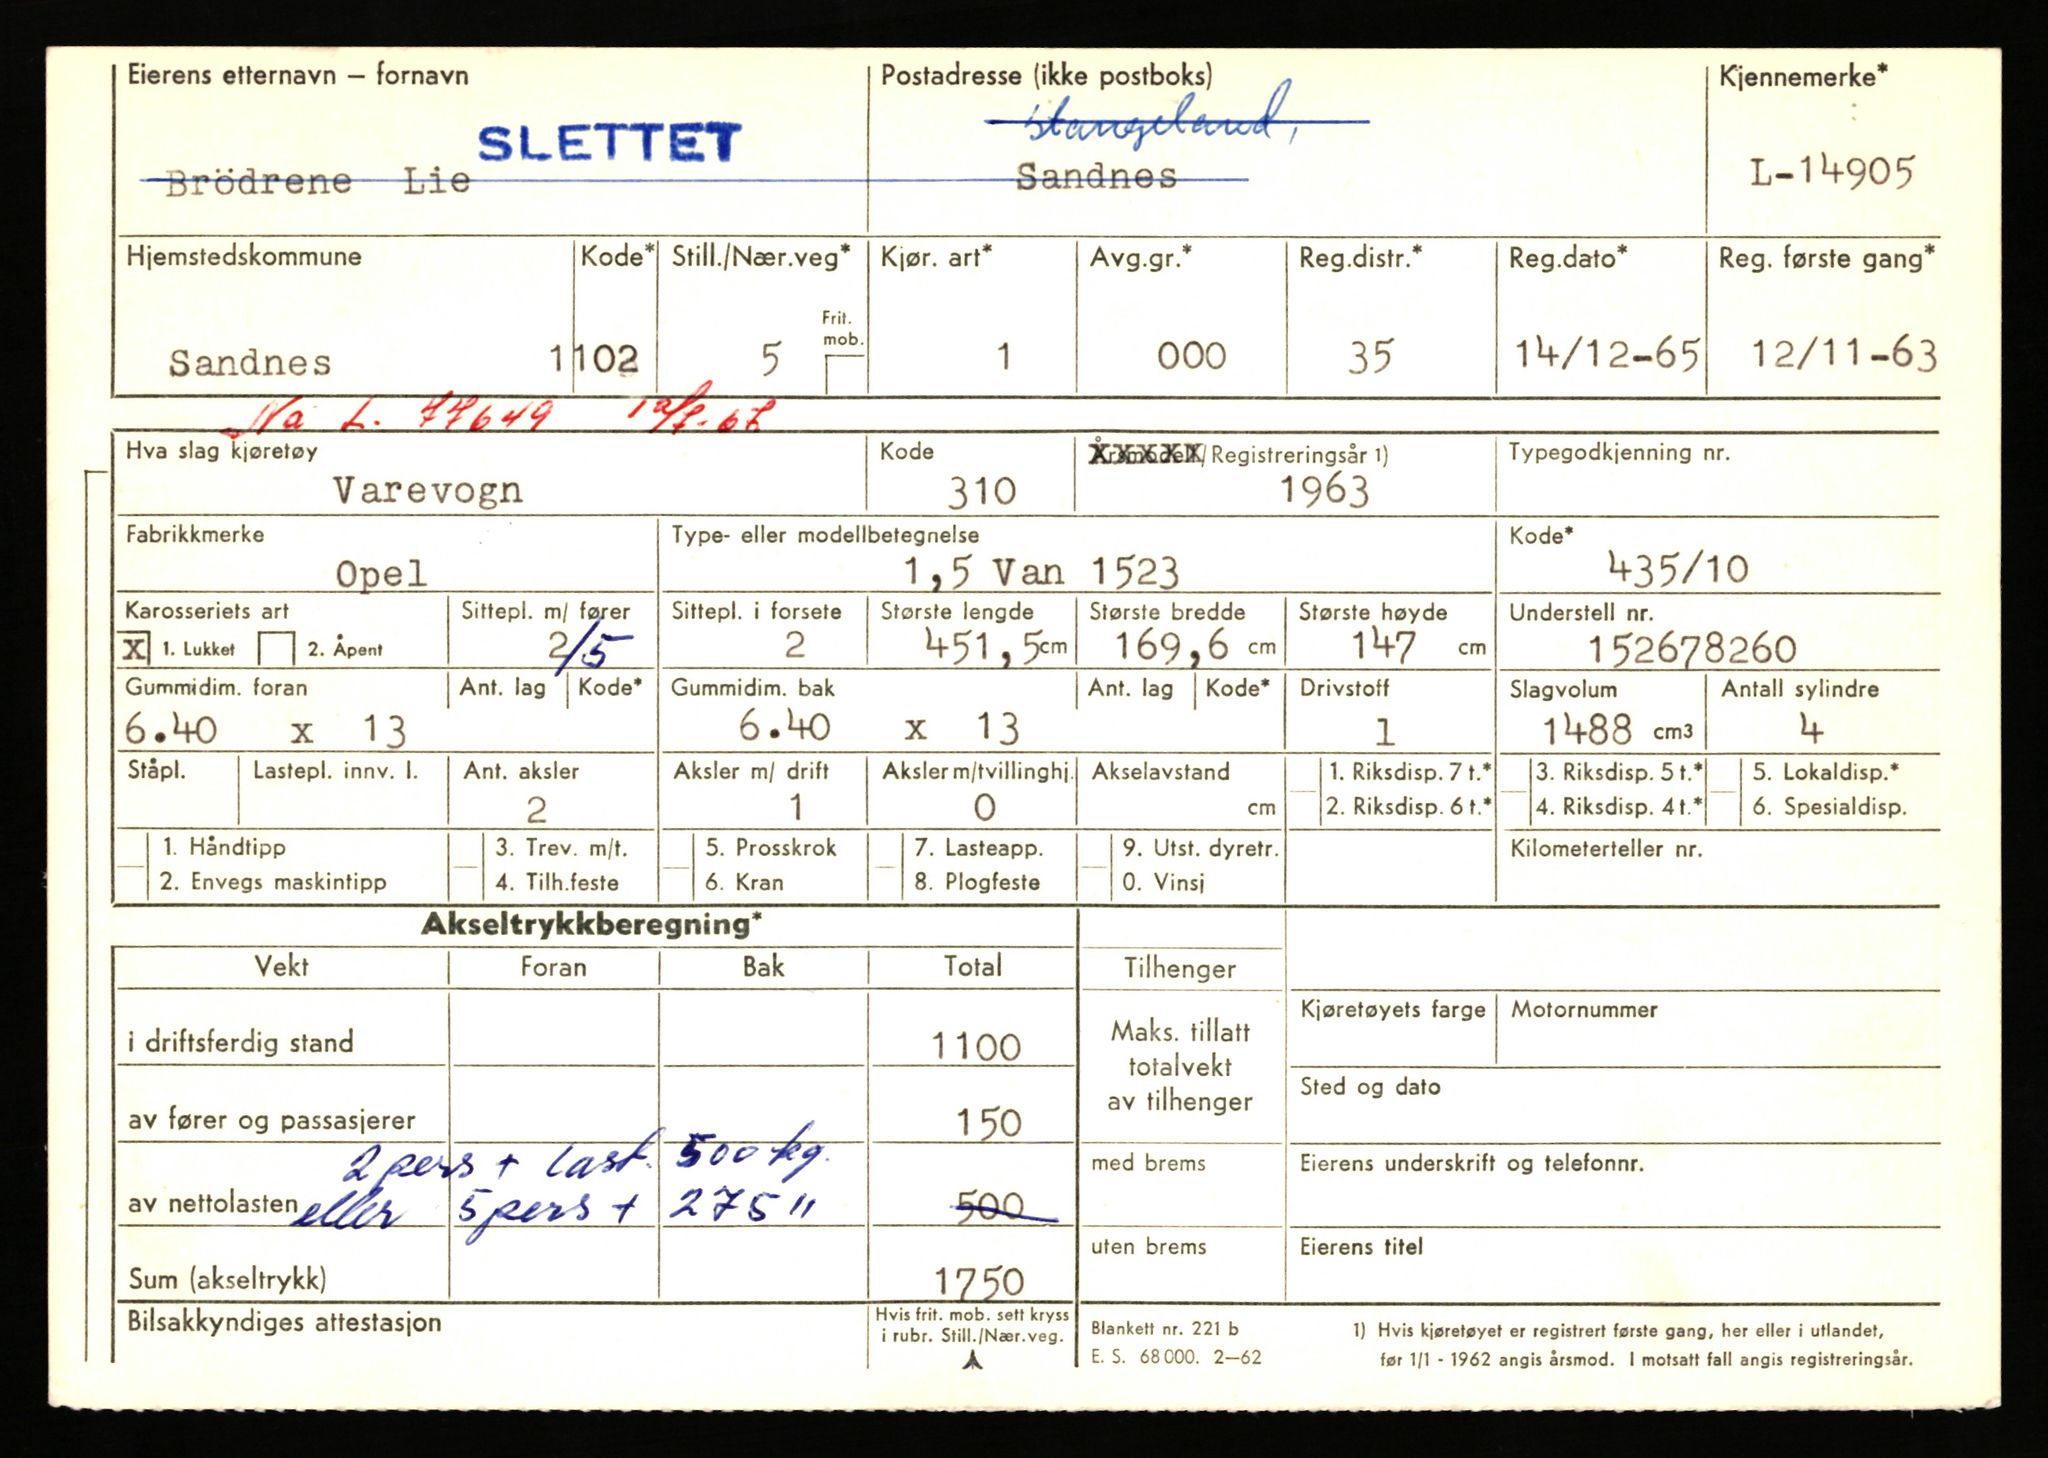 Eierens etternavn – fornavn Postadresse (ikke postboks) Kjennemerke*
SLETTET Stangeland,
Brödrene Lie Sandnes L-14905
Hjemstedskommune Kode* Still./Nær.veg* Kjør. art* Avg.gr.* Reg.distr.* Reg.dato* Reg. første gang*
Frit. mob.
Sandnes 1102 5 1 000 35 14/12-65 12/11-63
Na L. 77649 10/7-67
Hva slag kjøretøy Kode Årsmodell/Registreringsår 1) Typegodkjenning nr.
Varevogn 310 1963
Fabrikkmerke Type- eller modellbetegnelse Kode*
Opel 1,5 Van 1523 435/10
Karosseriets art Sittepl. m/ fører Sittepl. i forsete Største lengde Største bredde Største høyde Understell nr.
X 1. Lukket 2. Åpent 2/5 2 451,5 cm 169,6 cm 147 cm 152678260
Gummidim. foran Ant. lag Kode* Gummidim. bak Ant. lag Kode* Drivstoff Slagvolum Antall sylindre
6.40 x 13 6.40 x 13 1 1488 cm3 4
Ståpl. Lastepl. innv. l. Ant. aksler Aksler m/ drift Aksler m/tvillinghj. Akselavstand 1. Riksdisp. 7 t.* 3. Riksdisp. 5 t.* 5. Lokaldisp.*
2 1 0 cm 2. Riksdisp. 6 t.* 4. Riksdisp. 4 t.* 6. Spesialdisp.
1. Håndtipp 3. Trev. m/t. 5. Prosskrok 7. Lasteapp. 9. Utst. dyretr. Kilometerteller nr.
2. Envegs maskintipp 4. Tilh.feste 6. Kran 8. Plogfeste 0. Vinsj
Akseltrykkberegning*
Vekt Foran Bak Total Tilhenger
Kjøretøyets farge Motornummer
i driftsferdig stand 1100 Maks. tillatt totalvekt av tilhenger
Sted og dato
av fører og passasjerer 150
2 pers + last. 500 kg. med brems Eierens underskrift og telefonnr.
av nettolasten eller 5 pers + 275 " 500
uten brems Eierens titel
Sum (akseltrykk) 1750
Bilsakkyndiges attestasjon Hvis frit. mob. sett kryss i rubr. Still./Nær.veg.
Blankett nr. 221 b 1) Hvis kjøretøyet er registrert første gang, her eller i utlandet,
E. S. 68000. 2–62 før 1/1 - 1962 angis årsmod. I motsatt fall angis registreringsår.